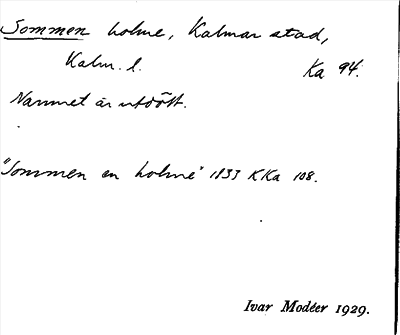 Sommen holme, Kalmar stad,
Kalm. l. Ka 94.
Namnet är utdött.
"Sommen en holme" 1833 KKa 108.
Ivar Modéer 1929.